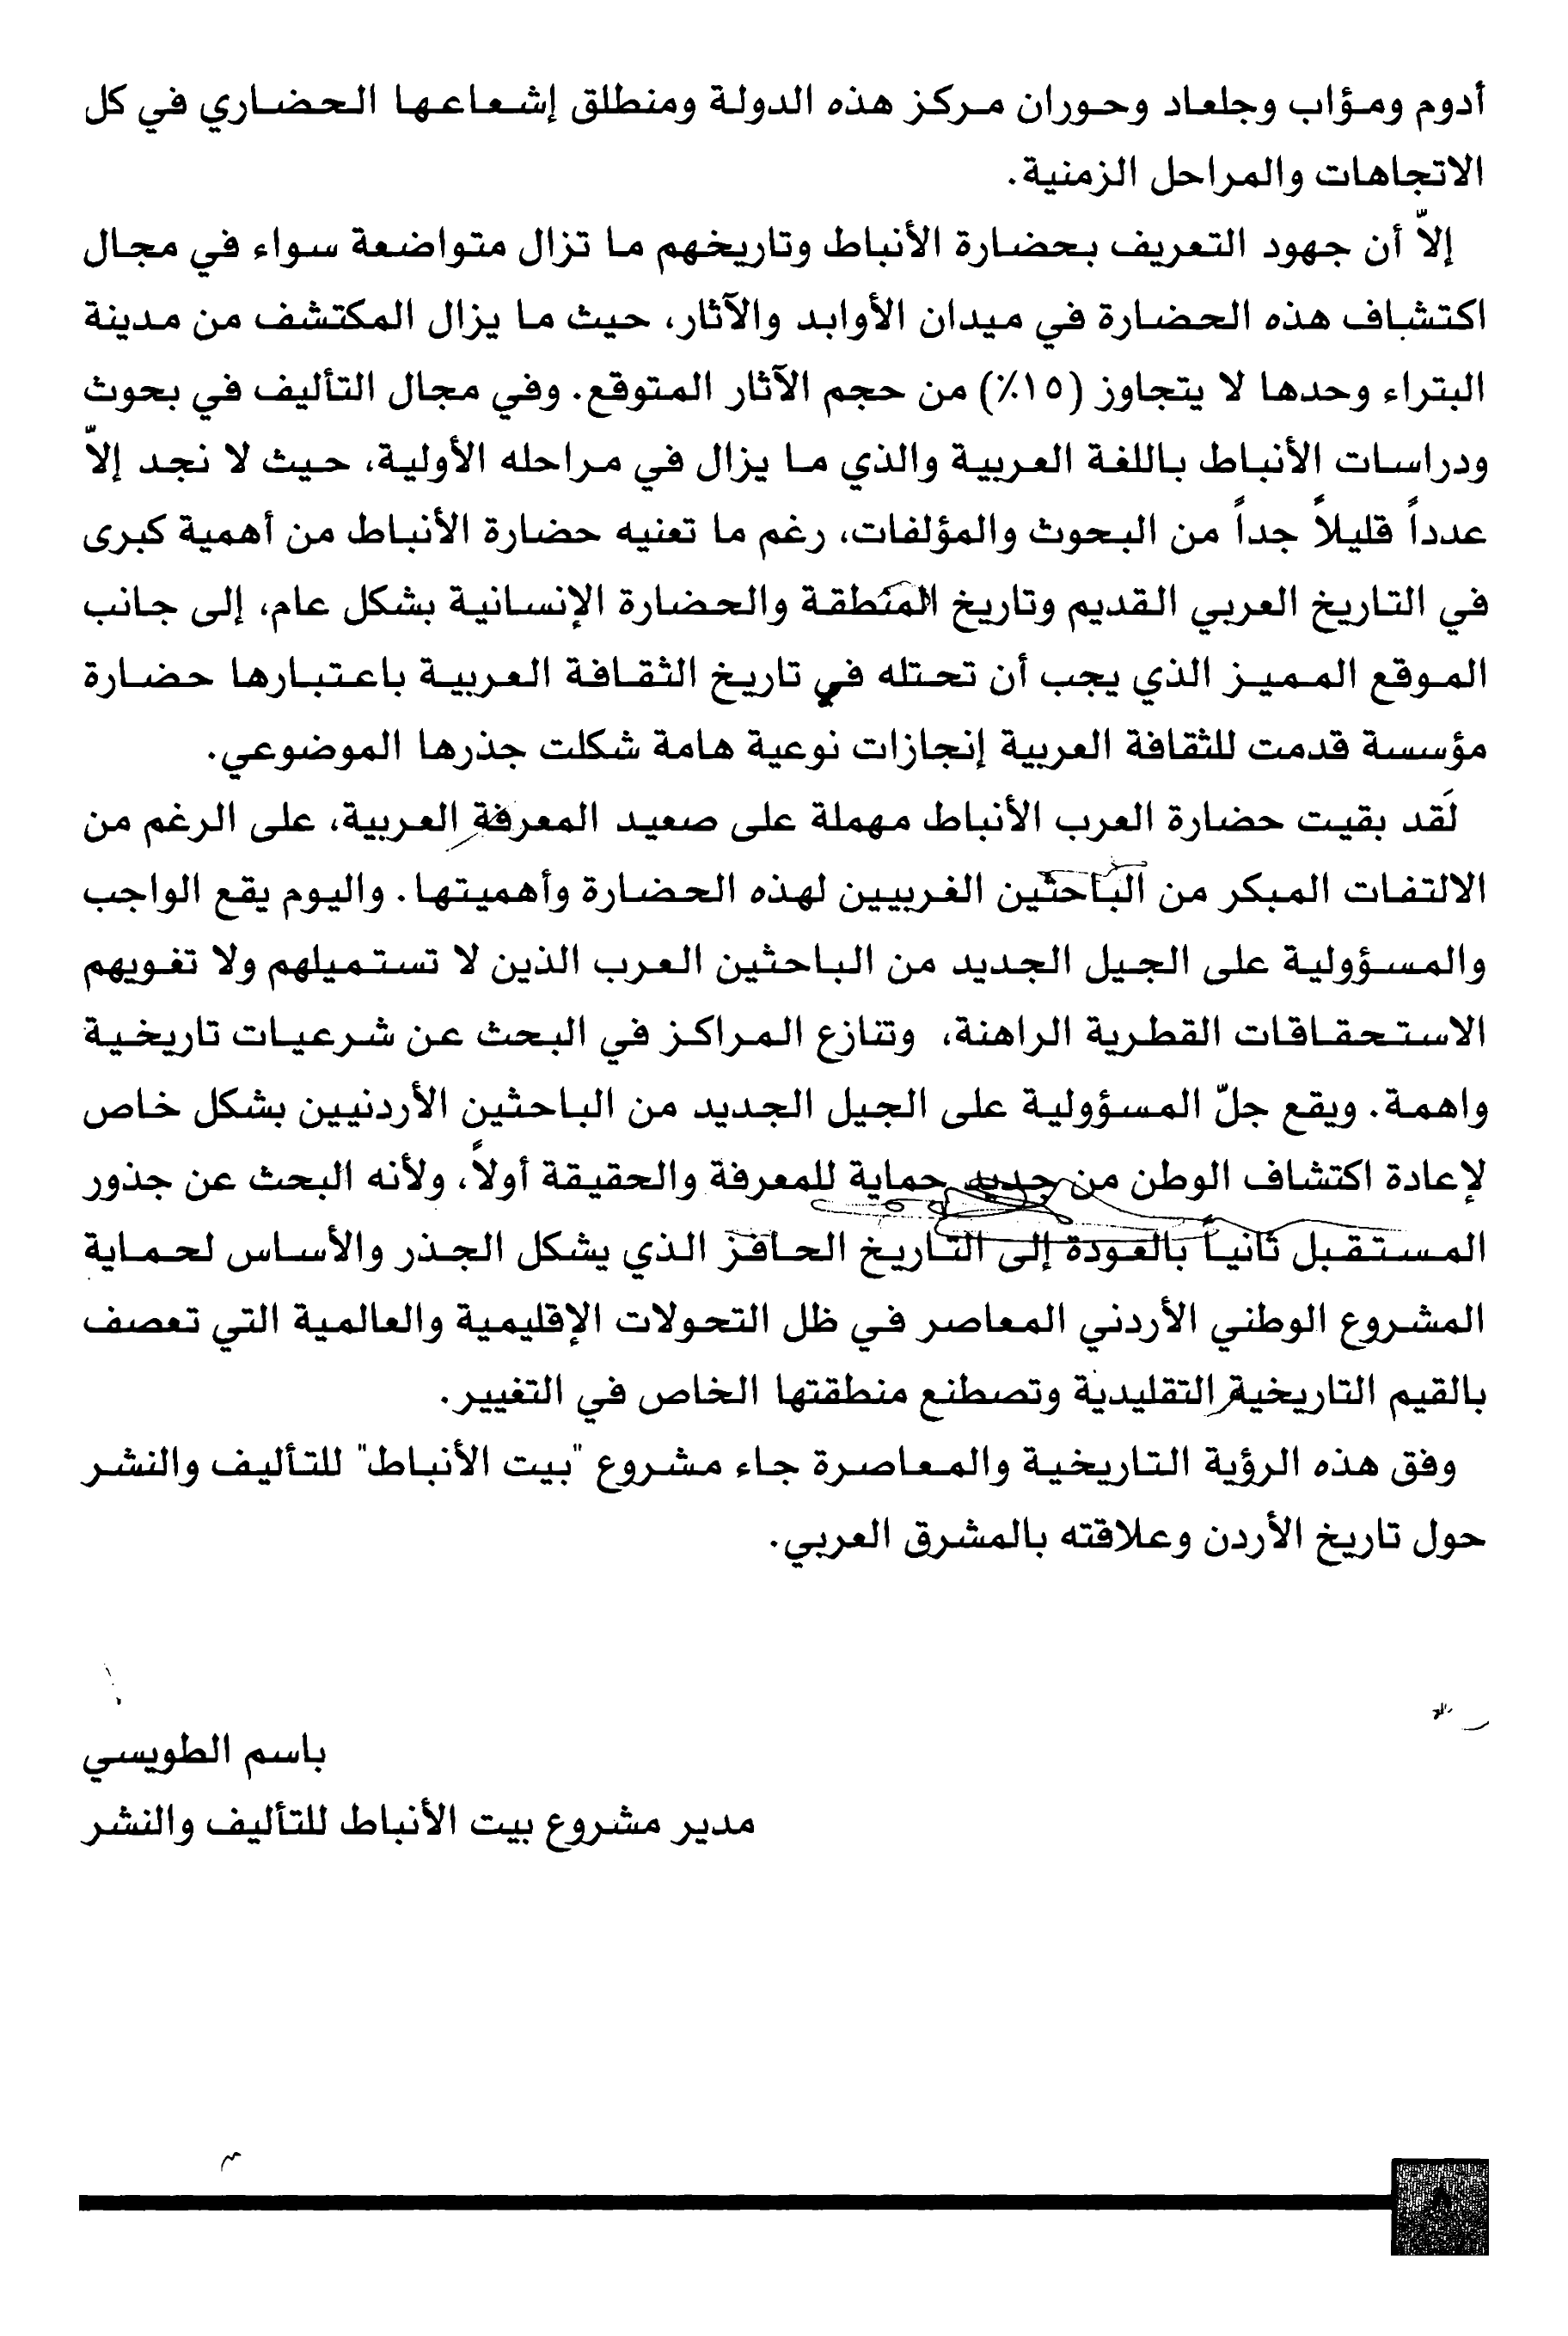 أدوم ومؤاب وجلعاد وحوران مركز هذه الدولة ومنطلق إشعاعها الحضاري في كل
الاتجاهات والمراحل الزمنية.
إلاّ أن جهود التعريف بحضارة الأنباط وتاريخهم ما تزال متواضعة سواء في مجال
اكتشاف هذه الحضارة في ميدان الأوابد والآثار، حيث ما يزال المكتشف من مدينة
البتراء وحدها لا يتجاوز (١٥٪) من حجم الآثار المتوقع. وفي مجال التأليف في بحوث
ودراسات الأنباط باللغة العربية والذي ما يزال في مراحله الأولية، حيث لا نجد إلاّ
عدداً قليلاً جداً من البحوث والمؤلفات، رغم ما تعنيه حضارة الأنباط من أهمية كبرى
في التاريخ العربي القديم وتاريخ المنطقة والحضارة الإنسانية بشكل عام، إلى جانب
الموقع المميز الذي يجب أن تحتله في تاريخ الثقافة العربية باعتبارها حضارة
مؤسسة قدمت للثقافة العربية إنجازات نوعية هامة شكلت جذرها الموضوعي.
لَقد بقيت حضارة العرب الأنباط مهملة على صعيد المعرفة العربية، على الرغم من
الالتفات المبكر من الباحثين الغربيين لهذه الحضارة وأهميتها. واليوم يقع الواجب
والمسؤولية على الجيل الجديد من الباحثين العرب الذين لا تستميلهم ولا تغويهم
الاستحقاقات القطرية الراهنة، وتنازع المراكز في البحث عن شرعيات تاريخية
واهمة. ويقع جلّ المسؤولية على الجيل الجديد من الباحثين الأردنيين بشكل خاص
لإعادة اكتشاف الوطن من جديد حماية للمعرفة والحقيقة أولاً، ولأنه البحث عن جذور
المستقبل ثانياً بالعودة إلى التاريخ الحافز الذي يشكل الجذر والأساس لحماية
المشروع الوطني الأردني المعاصر في ظل التحولات الإقليمية والعالمية التي تعصف
بالقيم التاريخية التقليدية وتصطنع منطقتها الخاص في التغيير.
وفق هذه الرؤية التاريخية والمعاصرة جاء مشروع "بيت الأنباط" للتأليف والنشر
حول تاريخ الأردن وعلاقته بالمشرق العربي.
باسم الطويسي
مدير مشروع بيت الأنباط للتأليف والنشر
٨